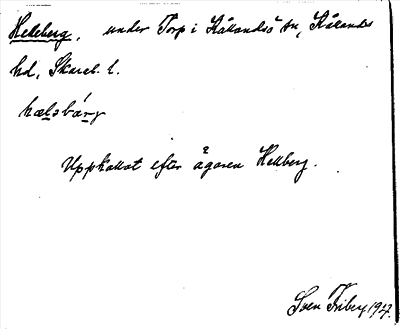 Helleberg, under Torp i Kållandsö sn, Kållands
hd, Skarab. l.
hælsbárg
Uppkallat efter ägaren Hellberg.
Sven Friberg 1927.